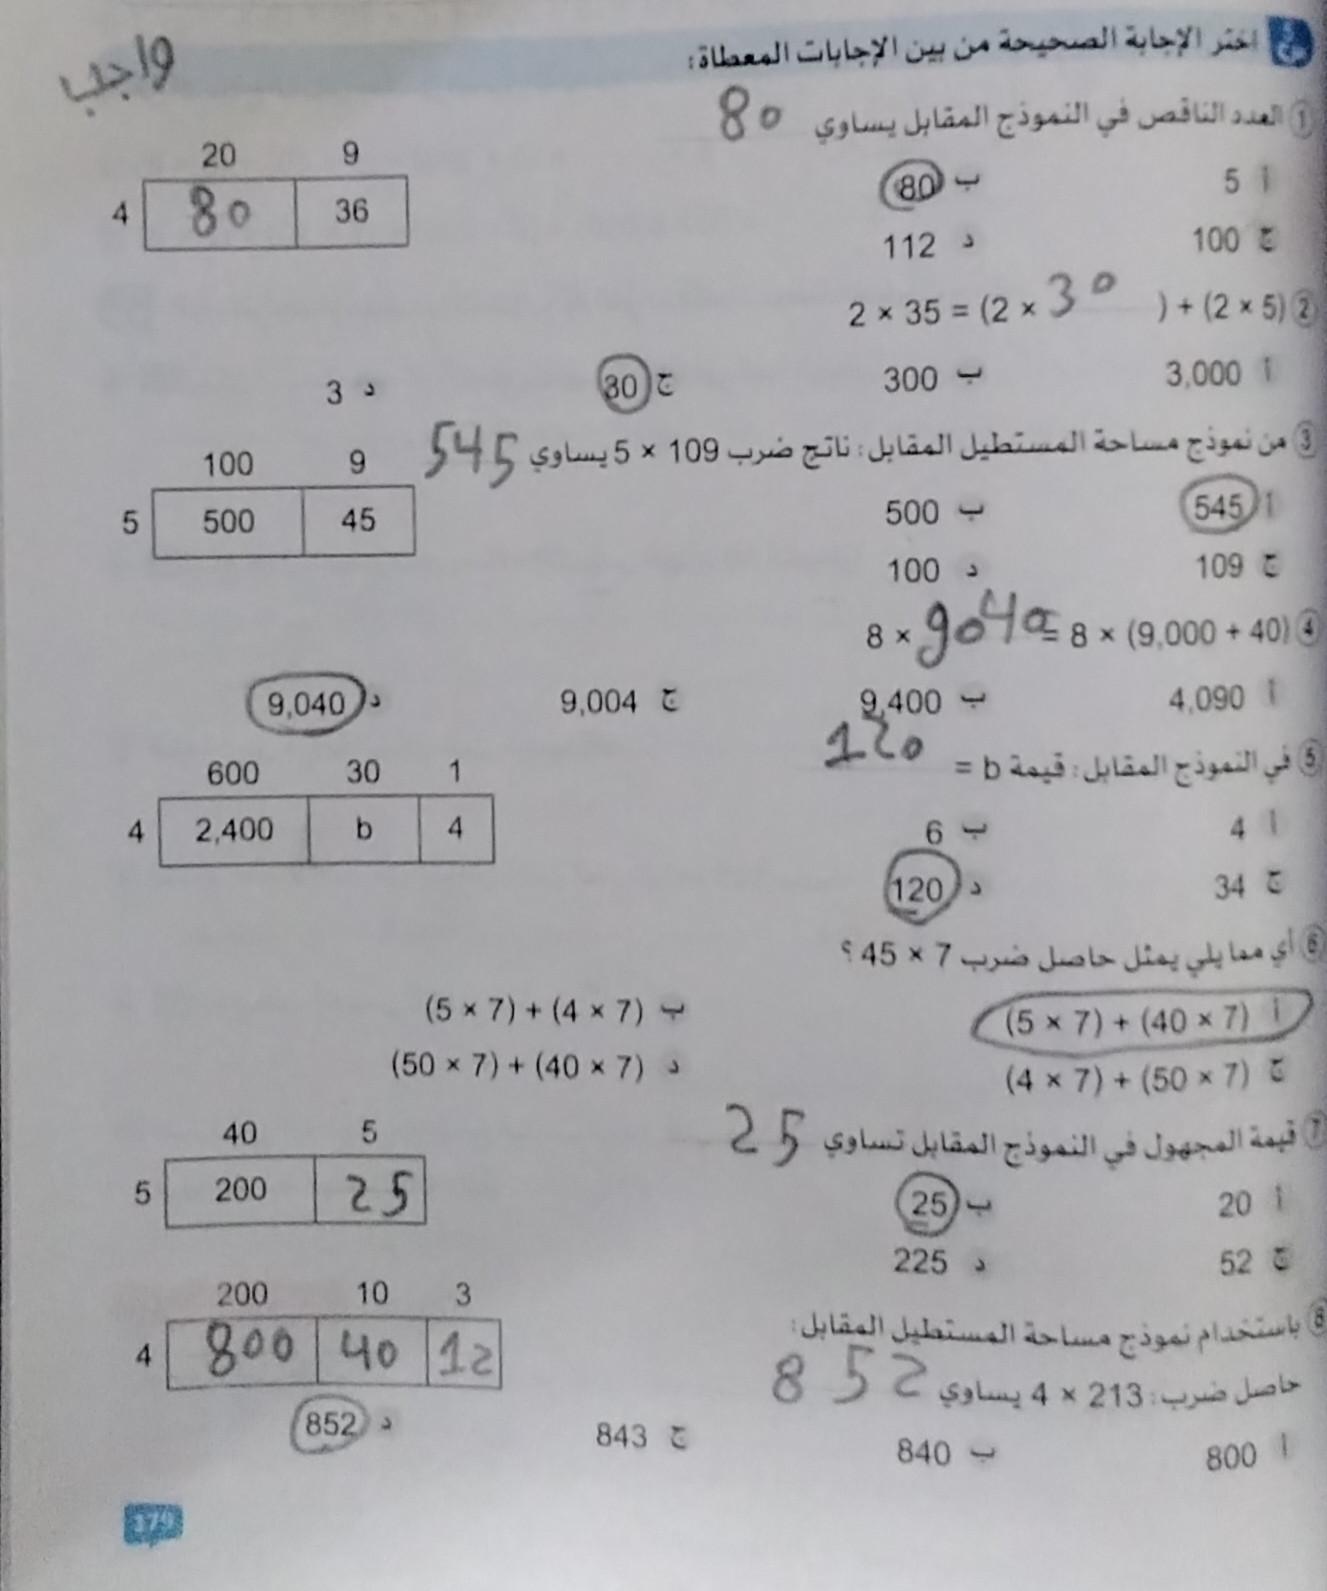 واجب
اختر الإجابة الصحيحة من بين الإجابات المعطاة:
① العدد الناقص في النموذج المقابل يساوي 80
20 9
4 80 36
أ 5 ب 80
ج 100 د 112
② 2 × 35 = (2 × 30) + (2 × 5)
أ 3,000 ب 300 ج 30 د 3
③ من نموذج مساحة المستطيل المقابل: ناتج ضرب 109 × 5 يساوي 545
100 9
5 500 45
أ 545 ب 500
ج 109 د 100
④ 8 × 9040 = 8 × (9,000 + 40)
أ 4,090 ب 9,400 ج 9,004 د 9,040
⑤ في النموذج المقابل: قيمة b = 120
600 30 1
4 2,400 b 4
أ 4 ب 6
ج 34 د 120
⑥ أي مما يلي يمثل حاصل ضرب 7 × 45 ؟
أ (5 × 7) + (40 × 7) ب (5 × 7) + (4 × 7)
ج (4 × 7) + (50 × 7) د (50 × 7) + (40 × 7)
⑦ قيمة المجهول في النموذج المقابل تساوي 25
40 5
5 200 25
أ 20 ب 25
ج 52 د 225
⑧ باستخدام نموذج مساحة المستطيل المقابل:
200 10 3
4 800 40 12
حاصل ضرب: 213 × 4 يساوي 852
أ 800 ب 840 ج 843 د 852
179